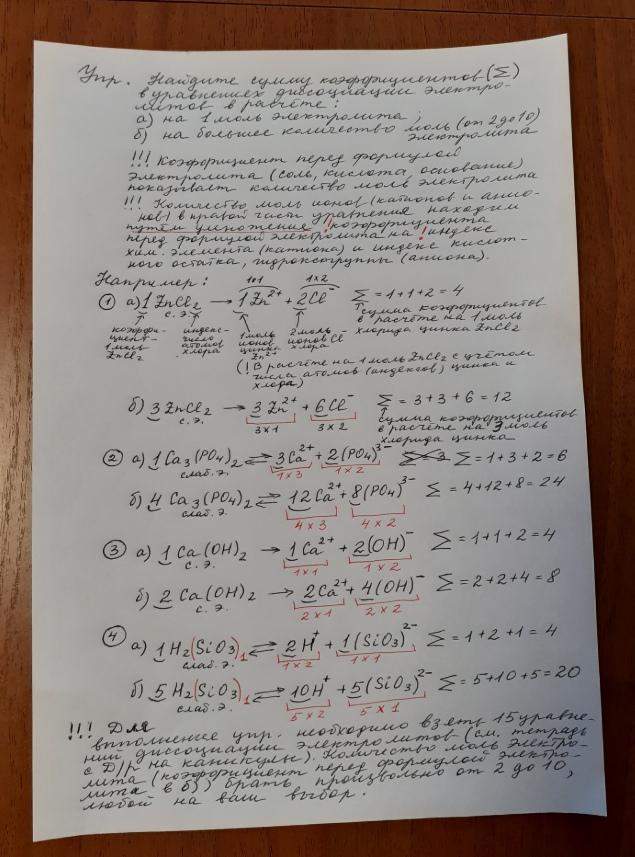 Упр. Найдите сумму коэффициентов (Σ)
в уравнениях диссоциации электро-
литов в расчёте:
а) на 1 моль электролита;
б) на большее количество моль (от 2 до 10)
электролита
!!! Коэффициент перед формулой
электролита (соль, кислота, основание)
показывает количество моль электролита
!!! Количество моль ионов (катионов и анио-
нов) в правой части уравнения находим
путём умножения !коэффициента
перед формулой электролита на !индекс
хим. элемента (катиона) и индекс кислот-
ного остатка, гидроксогруппы (аниона).
Например:
1×1 1×2
① а) 1 ZnCl₂ → 1 Zn²⁺ + 2Cl⁻ Σ = 1+1+2 = 4
с.э. сумма коэффициентов
в расчёте на 1 моль
хлорида цинка ZnCl₂
коэффи-
циент-
1 моль
ZnCl₂
индекс-
число
атомов
хлора
1 моль
ионов
цинка
Zn²⁺
2 моль
ионов Cl⁻
хлора
(! В расчёте на 1 моль ZnCl₂ с учётом
числа атомов (индексов) цинка и
хлора)
б) 3 ZnCl₂ → 3 Zn²⁺ + 6 Cl⁻ Σ = 3+3+6 = 12
с.э. 3×1 3×2 сумма коэффициентов
в расчёте на 3 моль
хлорида цинка
② а) 1 Ca₃(PO₄)₂ ⇄ 3Ca²⁺ + 2(PO₄)³⁻ Σ = 3 Σ = 1+3+2 = 6
слаб. э. 1×3 1×2
б) 4 Ca₃(PO₄)₂ ⇄ 12Ca²⁺ + 8(PO₄)³⁻ Σ = 4+12+8 = 24
слаб. э. 4×3 4×2
③ а) 1 Ca(OH)₂ → 1Ca²⁺ + 2(OH)⁻ Σ = 1+1+2 = 4
с.э. 1×1 1×2
б) 2 Ca(OH)₂ → 2Ca²⁺ + 4(OH)⁻ Σ = 2+2+4 = 8
с.э. 2×1 2×2
④ а) 1H₂(SiO₃)₁ ⇄ 2H⁺ + 1(SiO₃)²⁻ Σ = 1+2+1 = 4
слаб. э. 1×2 1×1
б) 5H₂(SiO₃)₁ ⇄ 10H⁺ + 5(SiO₃)²⁻ Σ = 5+10+5 = 20
слаб. э. 5×2 5×1
!!! Для
выполнение упр. необходимо взять 15 уравне-
ний диссоциации электролитов (см. тетрадь
с Д/р на каникулы). Количество моль электро-
лита (коэффициент перед формулой электро-
лита в б)) брать произвольно от 2 до 10,
любой на ваш выбор.